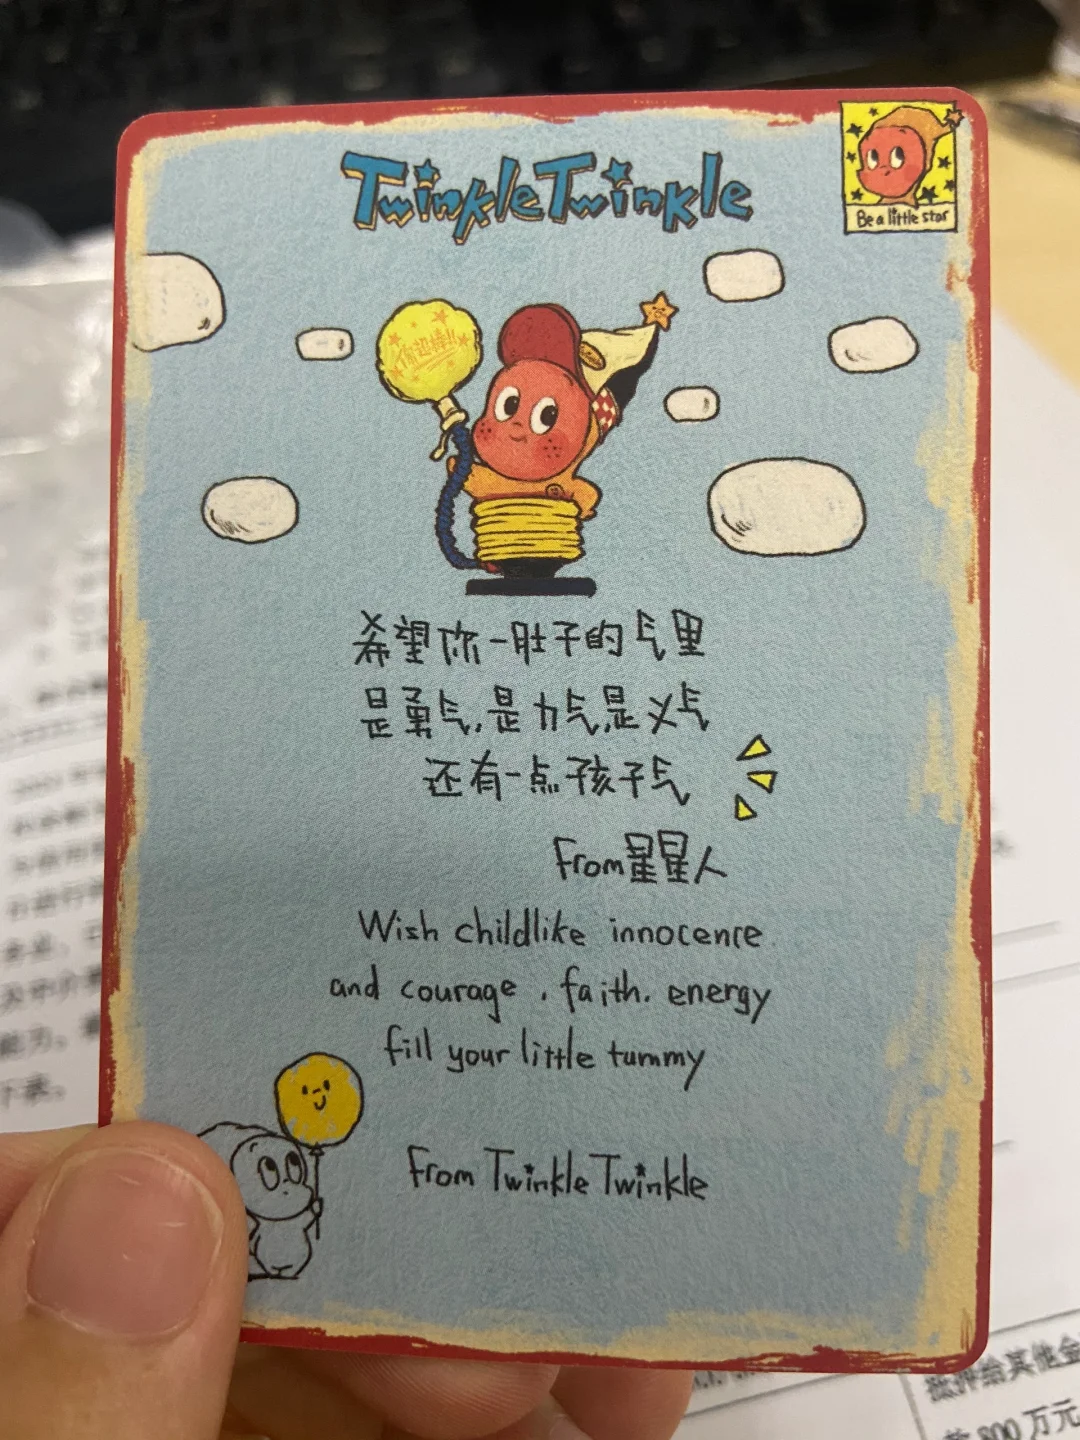 Twinkle Twinkle
Be a little star
你超棒!!
希望你一肚子的气里
是勇气,是力气,是义气
还有一点孩子气
From星星人
Wish childlike innocence
and courage , faith. energy
fill your little tummy
From Twinkle Twinkle
抵押给其他金
800万元